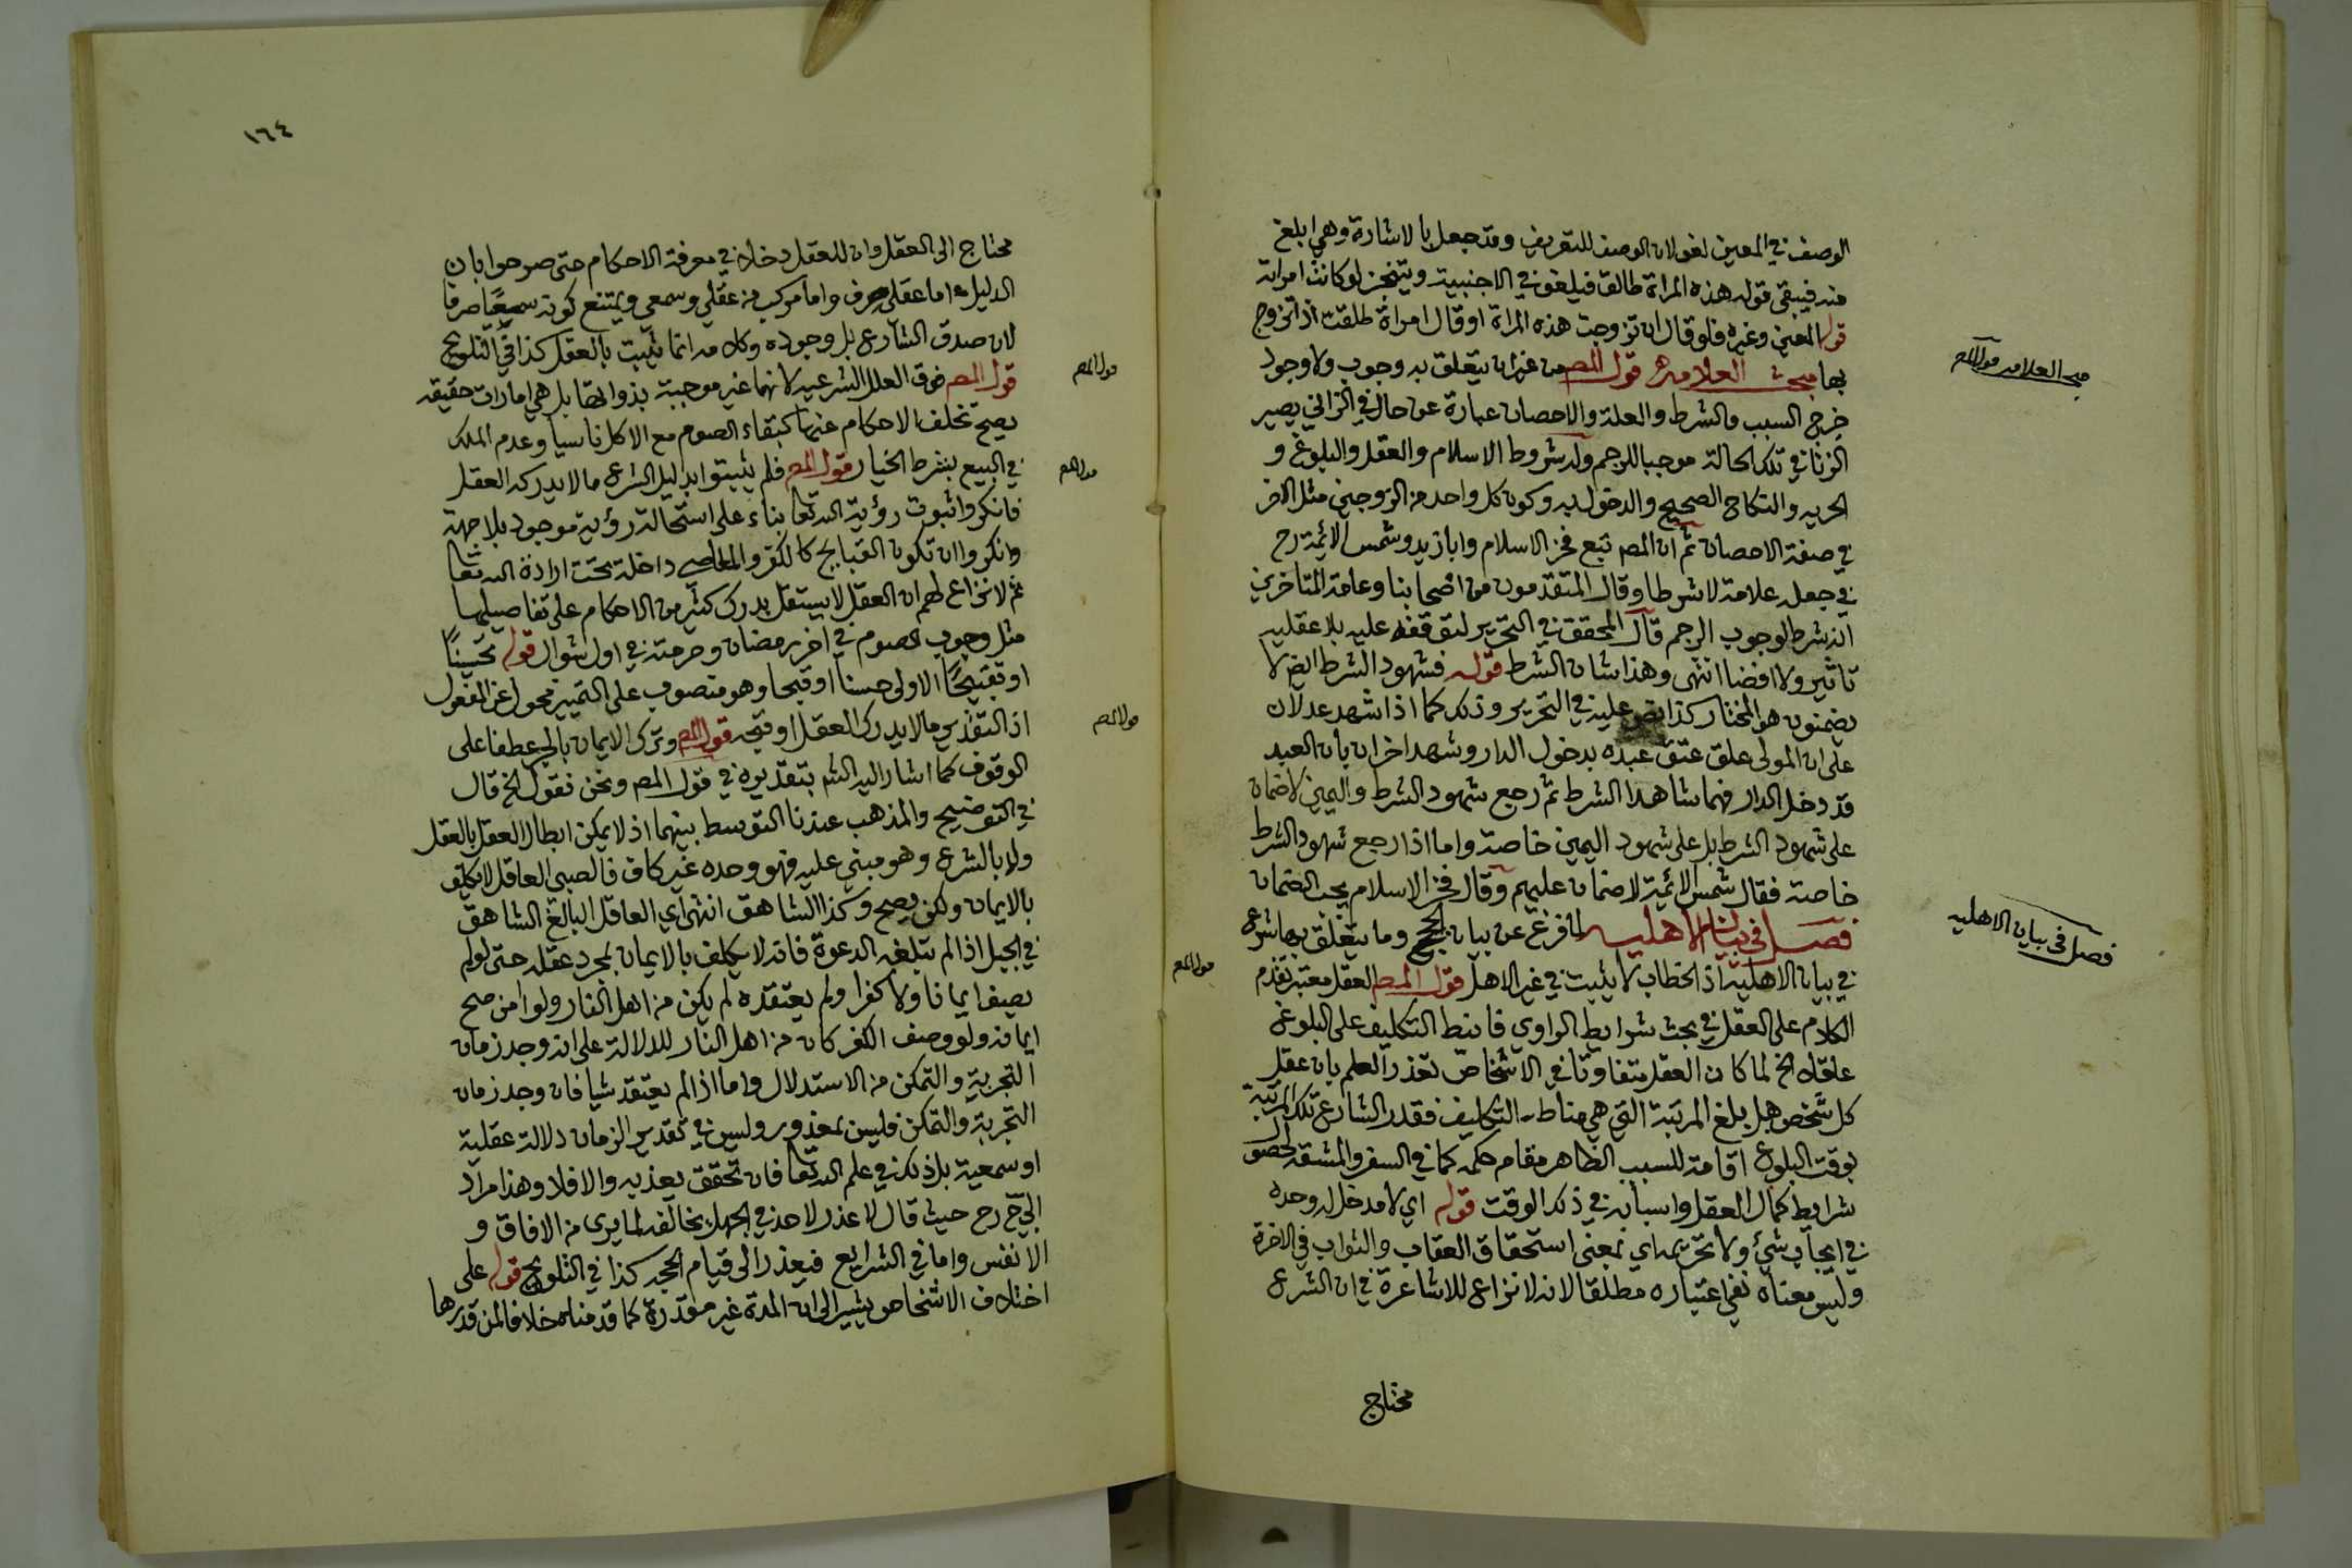 الوصف في المعين لغو لان الوصف للتعريف وقد جعل بالاشارة وهي ابلغ
منه فيبقى قوله هذه المراة طالق فيلغو في الاجنبية ويتنجز لو كانت امراته
قوله المعين وغيره فلو قال ان تزوجت هذه المراة او قال امراة طلقت اذا تزوج
بها مبحث العلامة قول المص من غير ان يتعلق به وجوب ولا وجود
خرج السبب والشرط والعلة والاحصان عبارة عن حال في الزاني يصير
الزنا في تلك الحالة موجبا للرجم وله شروط الاسلام والعقل والبلوغ و
الحريه والنكاح الصحيح والدخول به وكون كل واحد من الزوجين مثل الاخر
في صفة الاحصان ثم ان المص تبع فخر الاسلام وابا زيد وشمس الائمة رح
في جعله علامة لا شرطا وقال المتقدمون من اصحابنا وعامة المتاخرين
انه شرط لوجوب الرجم قال المحقق في التحرير لتوقفه عليه بلا عقليه
تاثير ولا افضا انتهى وهذا شان الشرط قوله فشهود الشرط ايض لا
يضمنون هو المختار كذا نص عليه في التحرير وذلك كما اذا شهد عدلان
على ان المولى علق عتق عبده بدخول الدار وشهد اخران بان العبد
قد دخل الدار فهما شاهدا الشرط ثم رجع شهود الشرط واليمين لا ضمان
على شهود الشرط بل على شهود اليمين خاصة واما اذا رجع شهود الشرط
خاصة فقال شمس الائمة لا ضمان عليهم وقال فخر الاسلام يجب الضمان
فصل في بيان الاهليه لما فرغ عن بيان الحجج وما يتعلق بها شرع
في بيان الاهلية اذ الخطاب لا يثبت في غير الاهل قول المص العقل معتبر تقدم
الكلام على العقل في بحث شرايط الراوي فانيط التكليف على البلوغ
عاقلا الخ لما كان العقل متفاوتا في الاشخاص تعذر العلم بان عقل
كل شخص هل بلغ المرتبة التي هي مناط التكليف فقدر الشارع تلك المرتبة
بوقت البلوغ اقامة للسبب الظاهر مقام حكمه كما في السفر والمشقة لحصول
شرايط كمال العقل واسبابه في ذلك الوقت قوله اي لا مدخل له وحده
في ايجاب شئ ولا تحريمه اي بمعنى استحقاق العقاب والثواب في الاخرة
وليس معناه نفي اعتباره مطلقا لانه لا نزاع للاشاعرة في ان الشرع
محتاج
فصل في بيان الاهليه
١٦٤
محتاج الى العقل وان للعقل دخلا في معرفة الاحكام حتى صرحوا بان
الدليل اما عقلي صرف واما مركب من عقلي وسمعي ويمتنع كونه سمعيا صرفا
لان صدق الشارع بل وجوده وكلامه انما يثبت بالعقل كذا في التلويح
قول المص فوق العلل الشرعيه لانها غير موجبة بذواتها بل هي امارات حقيقه
يصح تخلف الاحكام عنها كبقاء الصوم مع الاكل ناسيا وعدم الملك
في البيع بشرط الخيار قول المص فلم يثبتوا بدليل الشرع ما لا يدركه العقل
فانكروا ثبوت رؤية الله تعا بناء على استحالة رؤية موجود بلا جهة
وانكروا ان تكون القبايح كالكفر والمعاصي داخلة تحت ارادة الله تعا
ثم لا نزاع لهم ان العقل لا يستقل بدرك كثير من الاحكام على تفاصيلها
مثل وجوب صوم في اخر رمضان وحرمته في اول شوال قوله تحسينا
او تقبيحا الاولى حسنا او قبحا وهو منصوب على التمييز محول عن المفعول
اذ التقدير ما لا يدرك العقل او قبحه قول المص وترك الايمان بالجر عطفا على
الوقوف كما اشار اليه الشم بتقديره في قول المص ونحن نقول الخ قال
في التوضيح والمذهب عندنا التوسط بينهما اذ لا يمكن ابطال العقل بالعقل
ولا بالشرع وهو مبني عليه فهو وحده غير كاف فالصبي العاقل لا يكلف
بالايمان ولكن يصح وكذا الشاهق انتهى اي العاقل البالغ الشاهق
في الجبل اذا لم تبلغه الدعوة فانه لا يكلف بالايمان بمجرد عقله حتى لو لم
يصف ايمانا ولا كفرا ولم يعتقده لم يكن من اهل النار ولو امن صح
ايمانه ولو وصف الكفر كان من اهل النار للدلالة على انه وجد زمان
التجربة والتمكن من الاستدلال واما اذا لم يعتقد شيا فان وجد زمان
التجربة والتمكن فليس بمعذور وليس في تقدير الزمان دلالة عقلية
او سمعية بل ذلك في علم الله تعا فان تحقق يعذبه والا فلا وهذا مراد
ابي ح رح حيث قال لا عذر لاحد في الجهل بخالقه لما يرى من الافاق و
الانفس واما في الشرايع فيعذر الى قيام الحجه كذا في التلويح قوله على
اختلاف الاشخاص يشير الى ان المدة غير مقدرة كما قدمناه خلافا لمن قدرها
قول المص
قول المص
قول المص
قول المص